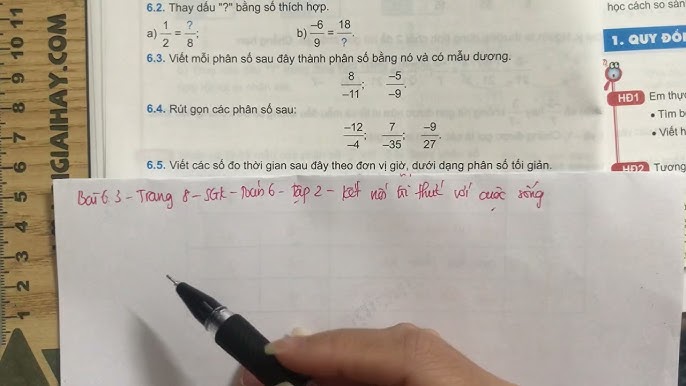 6.2. Thay dấu "?" bằng số thích hợp.
a) 1/2 = ?/8; b) -6/9 = 18/?.
6.3. Viết mỗi phân số sau đây thành phân số bằng nó và có mẫu dương.
8/-11; -5/-9.
6.4. Rút gọn các phân số sau:
-12/-4; 7/-35; -9/27.
6.5. Viết các số đo thời gian sau đây theo đơn vị giờ, dưới dạng phân số tối giản.
Bài 6.3 - Trang 8 - SGK - Toán 6 - tập 2 - Kết nối tri thức với cuộc sống
học cách so sán
1. QUY ĐỒ
HĐ1 Em thực
• Tìm b
• Viết h
HĐ2 Tương
NGIAIHAY.COM
11
10
9
8
7
6